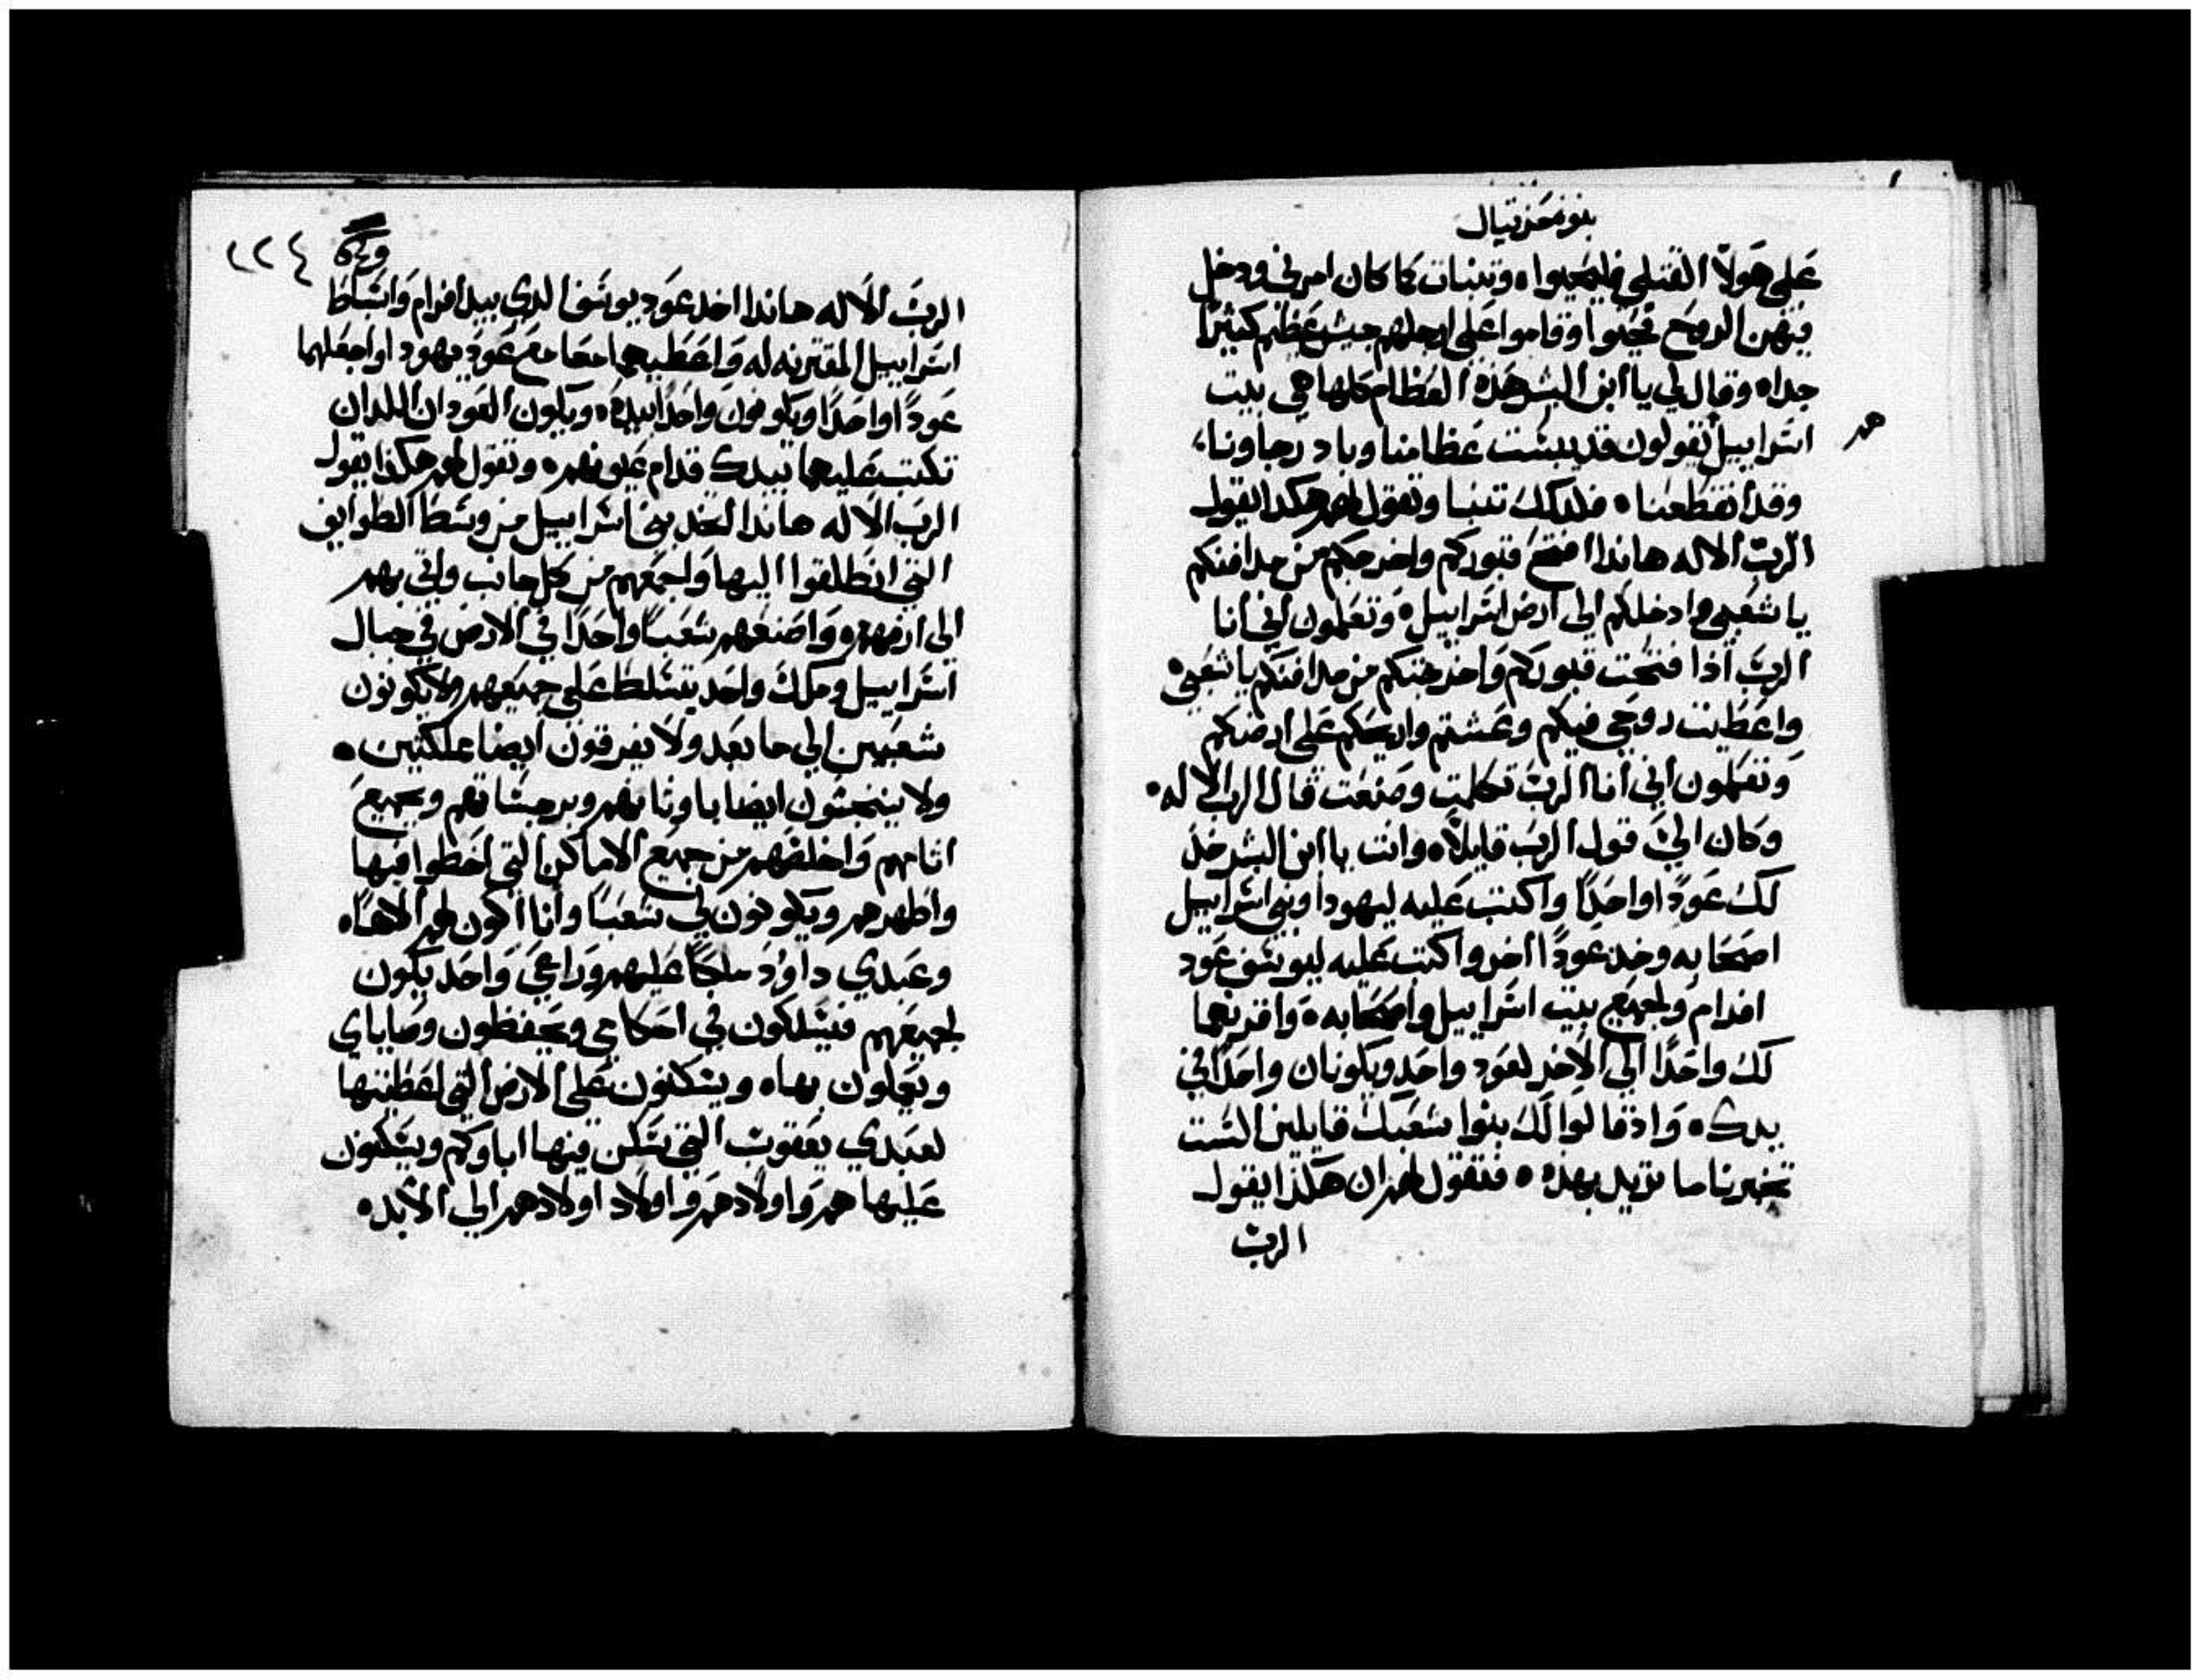 بنوة حزقيال
على هولا القتلى فليحيوا ه وتنبات كما كان امرني ودخل
فيهن الروح فحيوا وقاموا على ارجلهم جيش عظيم كثيرًا
جدا ه وقال لي يا ابن البشر هذه العظام كلها هي بيت
هم
اسراييل تقولون قد يبست عظامنا وباد رجاونا
وقد انقطعنا ه فلدلك تنبا وتقول لهم هكدا يقول
الرب الاله هاندا افتح قبوركم واخرجكم من مدافنكم
يا شعبي وادخلكم الى ارض اسراييل ه وتعلمون اني انا
الرب اذا فتحت قبوركم واخرجتكم من مدافنكم يا شعبي ه
واعطيت روحي فيكم وعشتم واريحكم على ارضكم
وتعلمون اني انا الرب تكلمت وصنعت قال الرب الاله ه
وكان اليَّ قول الرب قايلًا ه وانت يا ابن البشر خد
لك عودًا واحدًا واكتب عليه ليهودا وبني اسراييل
اصحابه وخد عودًا اخر واكتب عليه ليوسف عود
افرام ولجميع بيت اسراييل واصحابه ه واقرنهما
لك واحدًا الى الاخر لعود واحد ويكونان واحدًا في
يدك ه واذ قالوا لك بنوا شعبك قايلين الست
تخبرنا ما تريد بهذه ه فتقول لهم ان هكذا يقول
الرب
٢٢٤
الرب الاله هاندا اخد عود يوسف الدي بيد افرام واسباط
اسراييل المقترنه له واعطيهما معا مع عود يهودا واجعلهما
عودًا واحدًا ويكونون واحدًا بيده ه ويكون العودان اللدان
تكتب عليهما بيدك قدام عيونهم ه وتقول لهم هكذا يقول
الرب الاله هاندا اخد بني اسراييل من وسط الطوايف
التي انطلقوا اليها واجمعهم من كل جانب واتي بهم
الى ارضهم ه واصنعهم شعبًا واحدًا في الارض في جبال
اسراييل وملك واحد يتسلط على جميعهم ولا يكونون
شعبين الى ما بعد ولا يفرقون ايضا مملكتين ه
ولا ينجسون ايضا باوثانهم وبرجساتهم وبجميع
اثامهم واخلصهم من جميع الاماكن التي اخطوا فيها
واطهرهم ويكونون لي شعبًا وانا اكون لهم الاهًا ه
وعبدي داوُد ملكًا عليهم وراعي واحد يكون
لجميعهم فيسلكون في احكامي ويحفظون وصاياي
ويعملون بها ه ويسكنون على الارض التي اعطيتها
لعبدي يعقوب التي سكن فيها اباوكم ويسكنون
عليها هم واولادهم واولاد اولادهم الى الابد ه